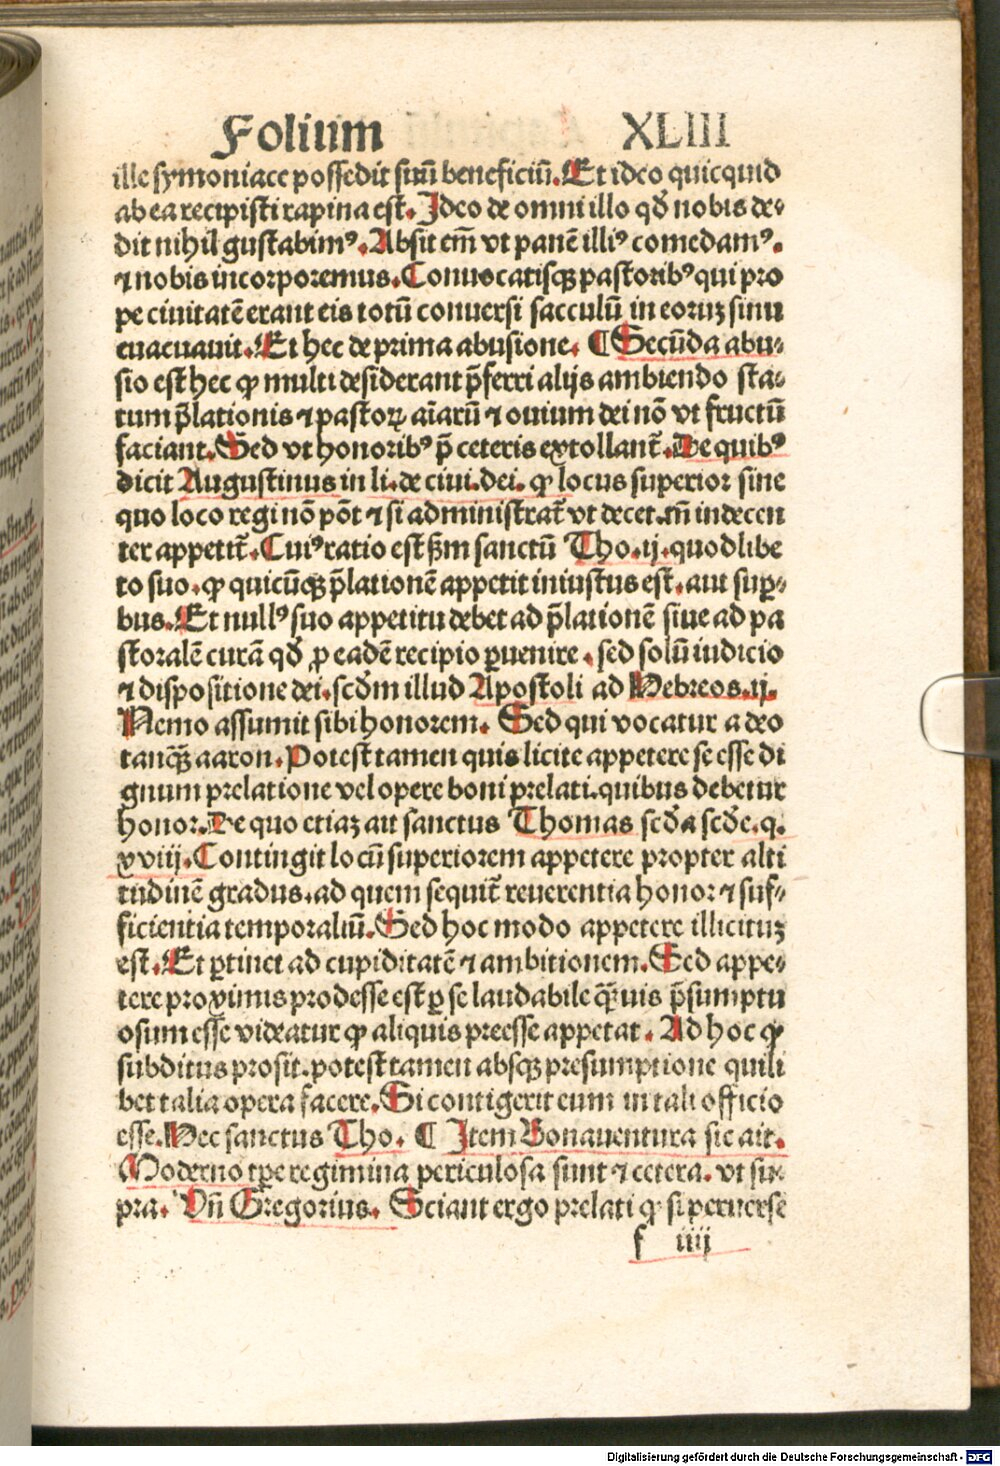 Folium XLIII
ille symoniace possedit suũ beneficiũ. Et ideo quicquid
ab ea recipisti rapina est. Ideo de omni illo qđ nobis de⸗
dit nihil gustabimꝰ. Absit em̃ vt panẽ illiꝰ comedamꝰ.
⁊ nobis incorporemus. Conuocatisqꝫ pastoribꝰ qui pro
pe ciuitatẽ erant eis totũ conuersi sacculũ in eoruꝫ sinu
euacuauit. Et hec de prima abusione. ¶ Secũda abu⸗
sio est hec ꝙ multi desiderant p̃ferri alijs ambiendo sta⸗
tum p̃lationis ⁊ pastoꝝ aĩarũ ⁊ ouium dei nõ vt fructũ
faciant. Sed vt honoribꝰ p̃ ceteris extollant̃. De quibꝰ
dicit Augustinus in li. de ciui. dei. ꝙ locus superior sine
quo loco regi nõ põt ⁊ si administrat̃ vt decet. tñ indecen
ter appetit̃. Cuiꝰ ratio est ẞm sanctũ Tho. ij. quodlibe
to suo. ꝙ quicũqꝫ p̃lationẽ appetit iniustus est. aut suꝑ⸗
bus. Et nullꝰ suo appetitu debet ad p̃lationẽ siue ad pa
storalẽ curã qđ ꝓ eadẽ recipio ꝑuenire. sed solũ iudicio
⁊ dispositione dei. scđm illud Apostoli ad Hebreos. ij.
Nemo assumit sibi honorem. Sed qui vocatur a deo
tanqꝫ̃ aaron. Potest tamen quis licite appetere se esse di
gnum prelatione vel opere boni prelati. quibus debetur
honor. De quo etiaꝫ ait sanctus Thomas scđa scđe. q.
xviij. Contingit locũ superiorem appetere propter alti
tudinẽ gradus. ad quem sequit̃ reuerentia honor ⁊ suf⸗
ficientia temporaliũ. Sed hoc modo appetere illicituꝫ
est. Et ꝑtinet ad cupiditatẽ ⁊ ambitionem. Sed appe⸗
tere proximis prodesse est ꝑ se laudabile qꝫ̃uis p̃sumptu
osum esse videatur ꝙ aliquis preesse appetat. Ad hoc ꝙ
subditus prosit. potest tamen absqꝫ presumptione quili
bet talia opera facere. Si contigerit eum in tali officio
esse. Hec sanctus Tho. ¶ Item Bonauentura sic ait.
Moderno tꝑe regimina periculosa sunt ⁊ cetera. vt su⸗
pra. Vñ Gregorius. Sciant ergo prelati ꝙ si peruerse
f iiij
Digitalisierung gefördert durch die Deutsche Forschungsgemeinschaft - DFG